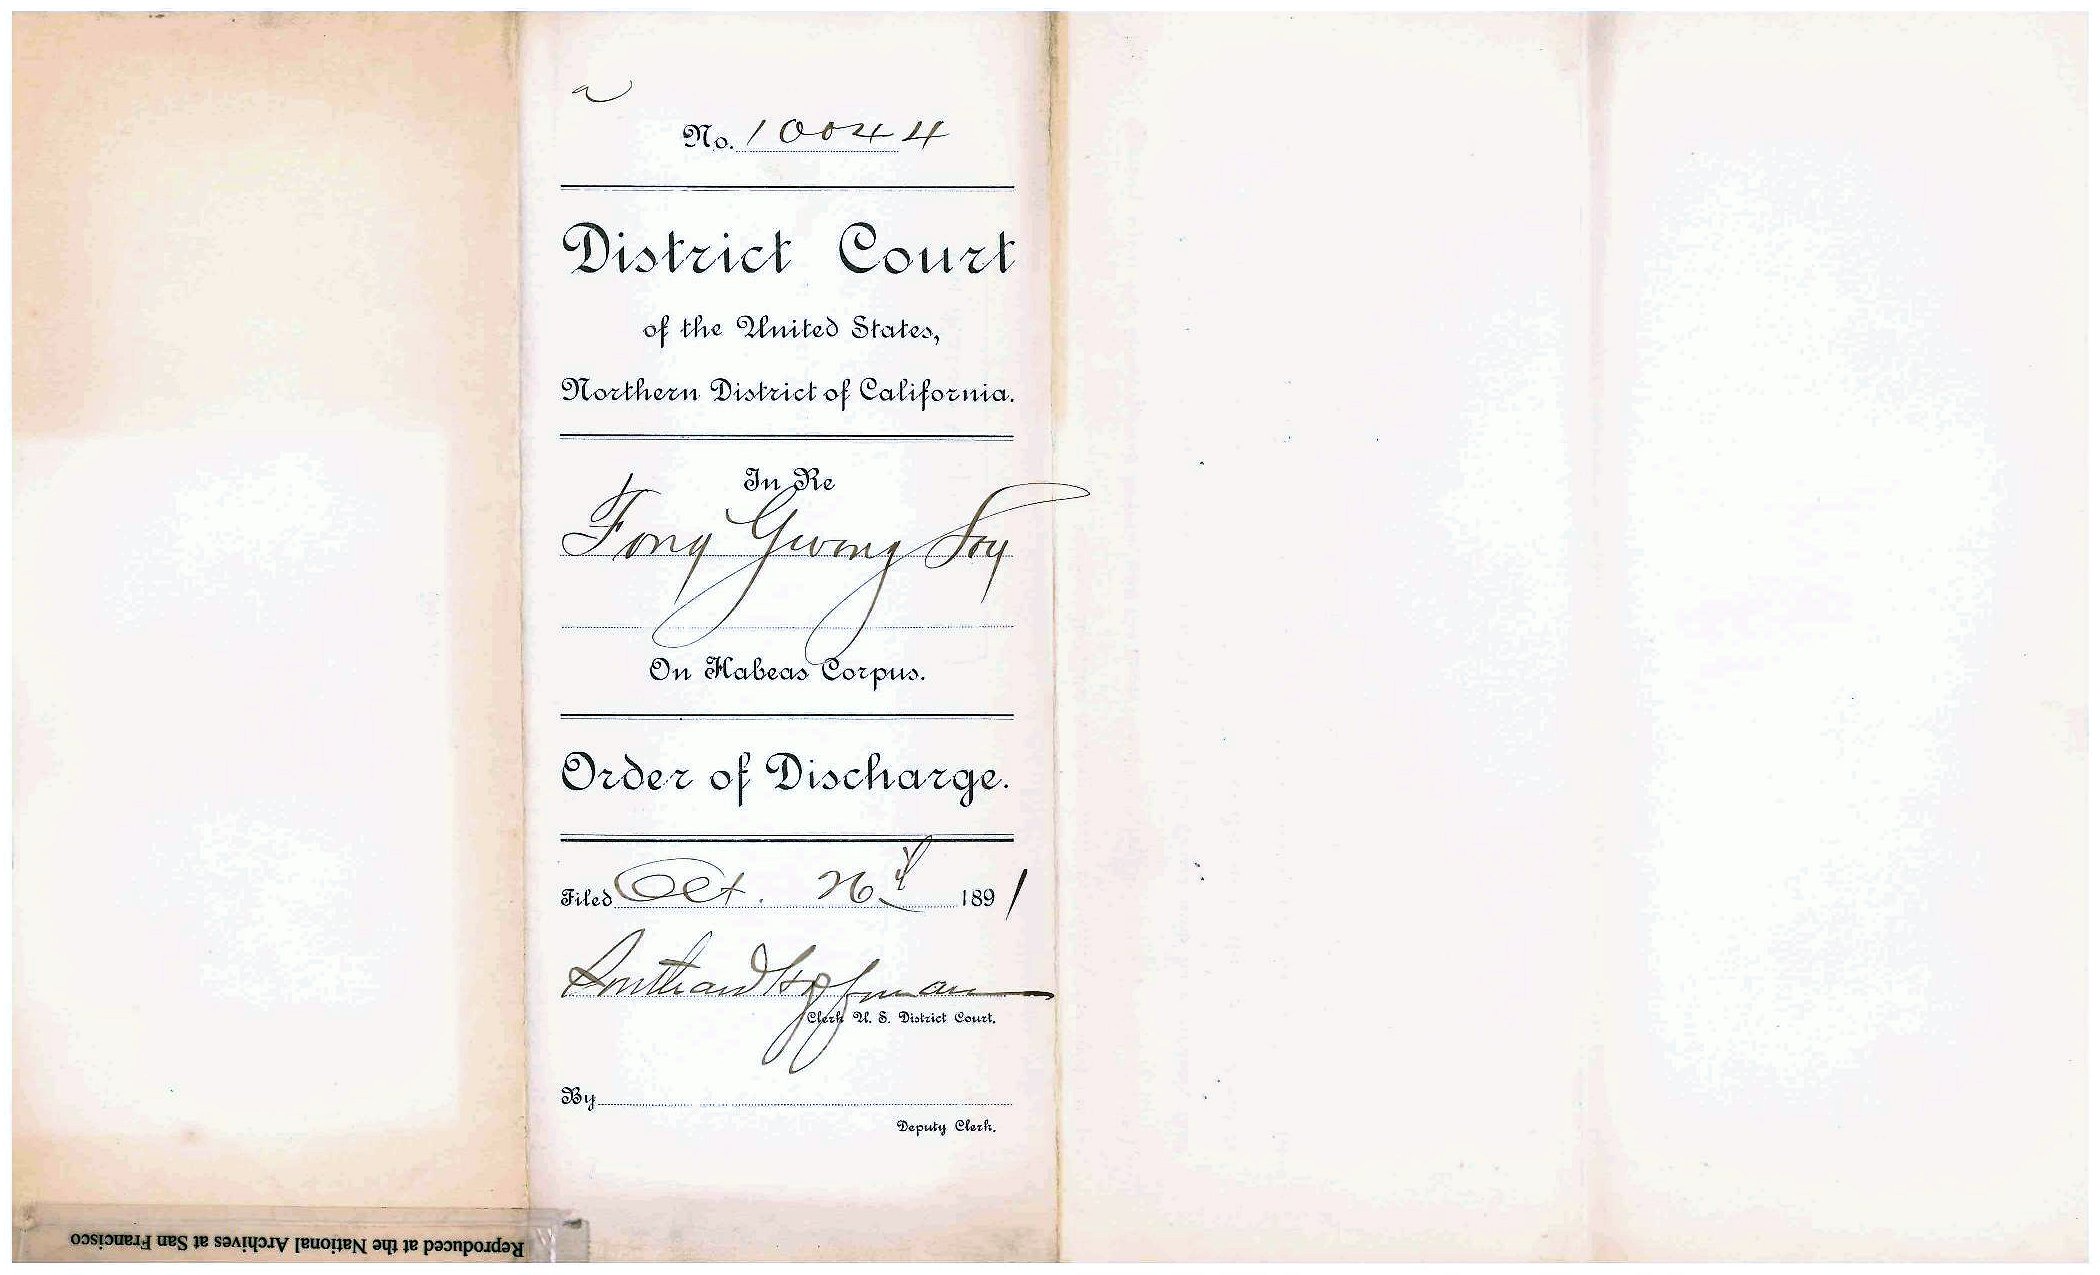 a
No. 10044
District Court
of the United States,
Northern District of California.
In Re
Fong Gwong Soy
On Habeas Corpus.
Order of Discharge.
Filed Oct. 26th 1891
Southard Hoffman
Clerk U. S. District Court.
By
Deputy Clerk.
Reproduced at the National Archives at San Francisco